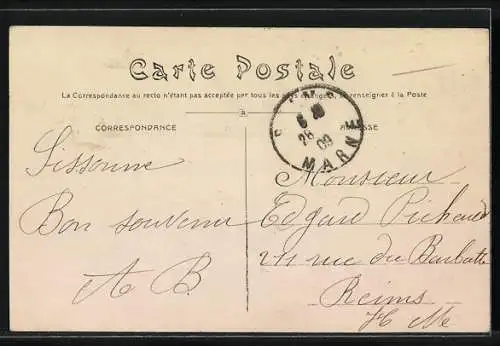 Carte Postale
La Correspondance au recto n'étant pas acceptée par tous les pays étrangers, se renseigner à la Poste
CORRESPONDANCE
ADRESSE
28
09
MARNE
Sissonne
Bon souvenir
A B
Monsieur
Edgard Pichard
211 rue du Barbatre
Reims